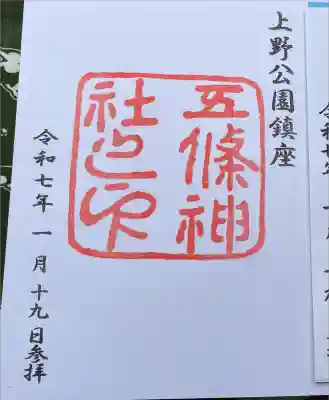 上野公園鎮座
五條神
社之印
令和七年 一月十九日参拝